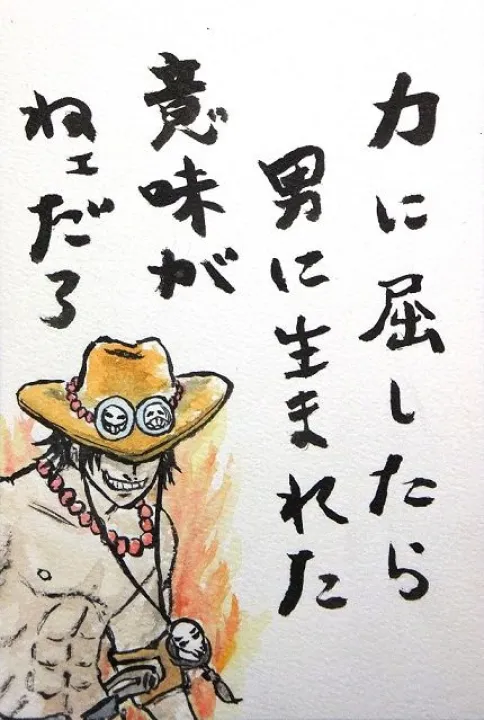 力に屈したら
男に生まれた
意味が
ねェだろ